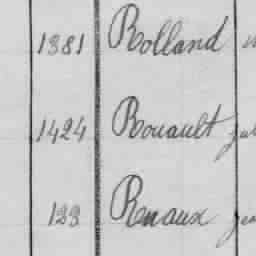 1381 Rolland
1424 Rouault
123 Renaux